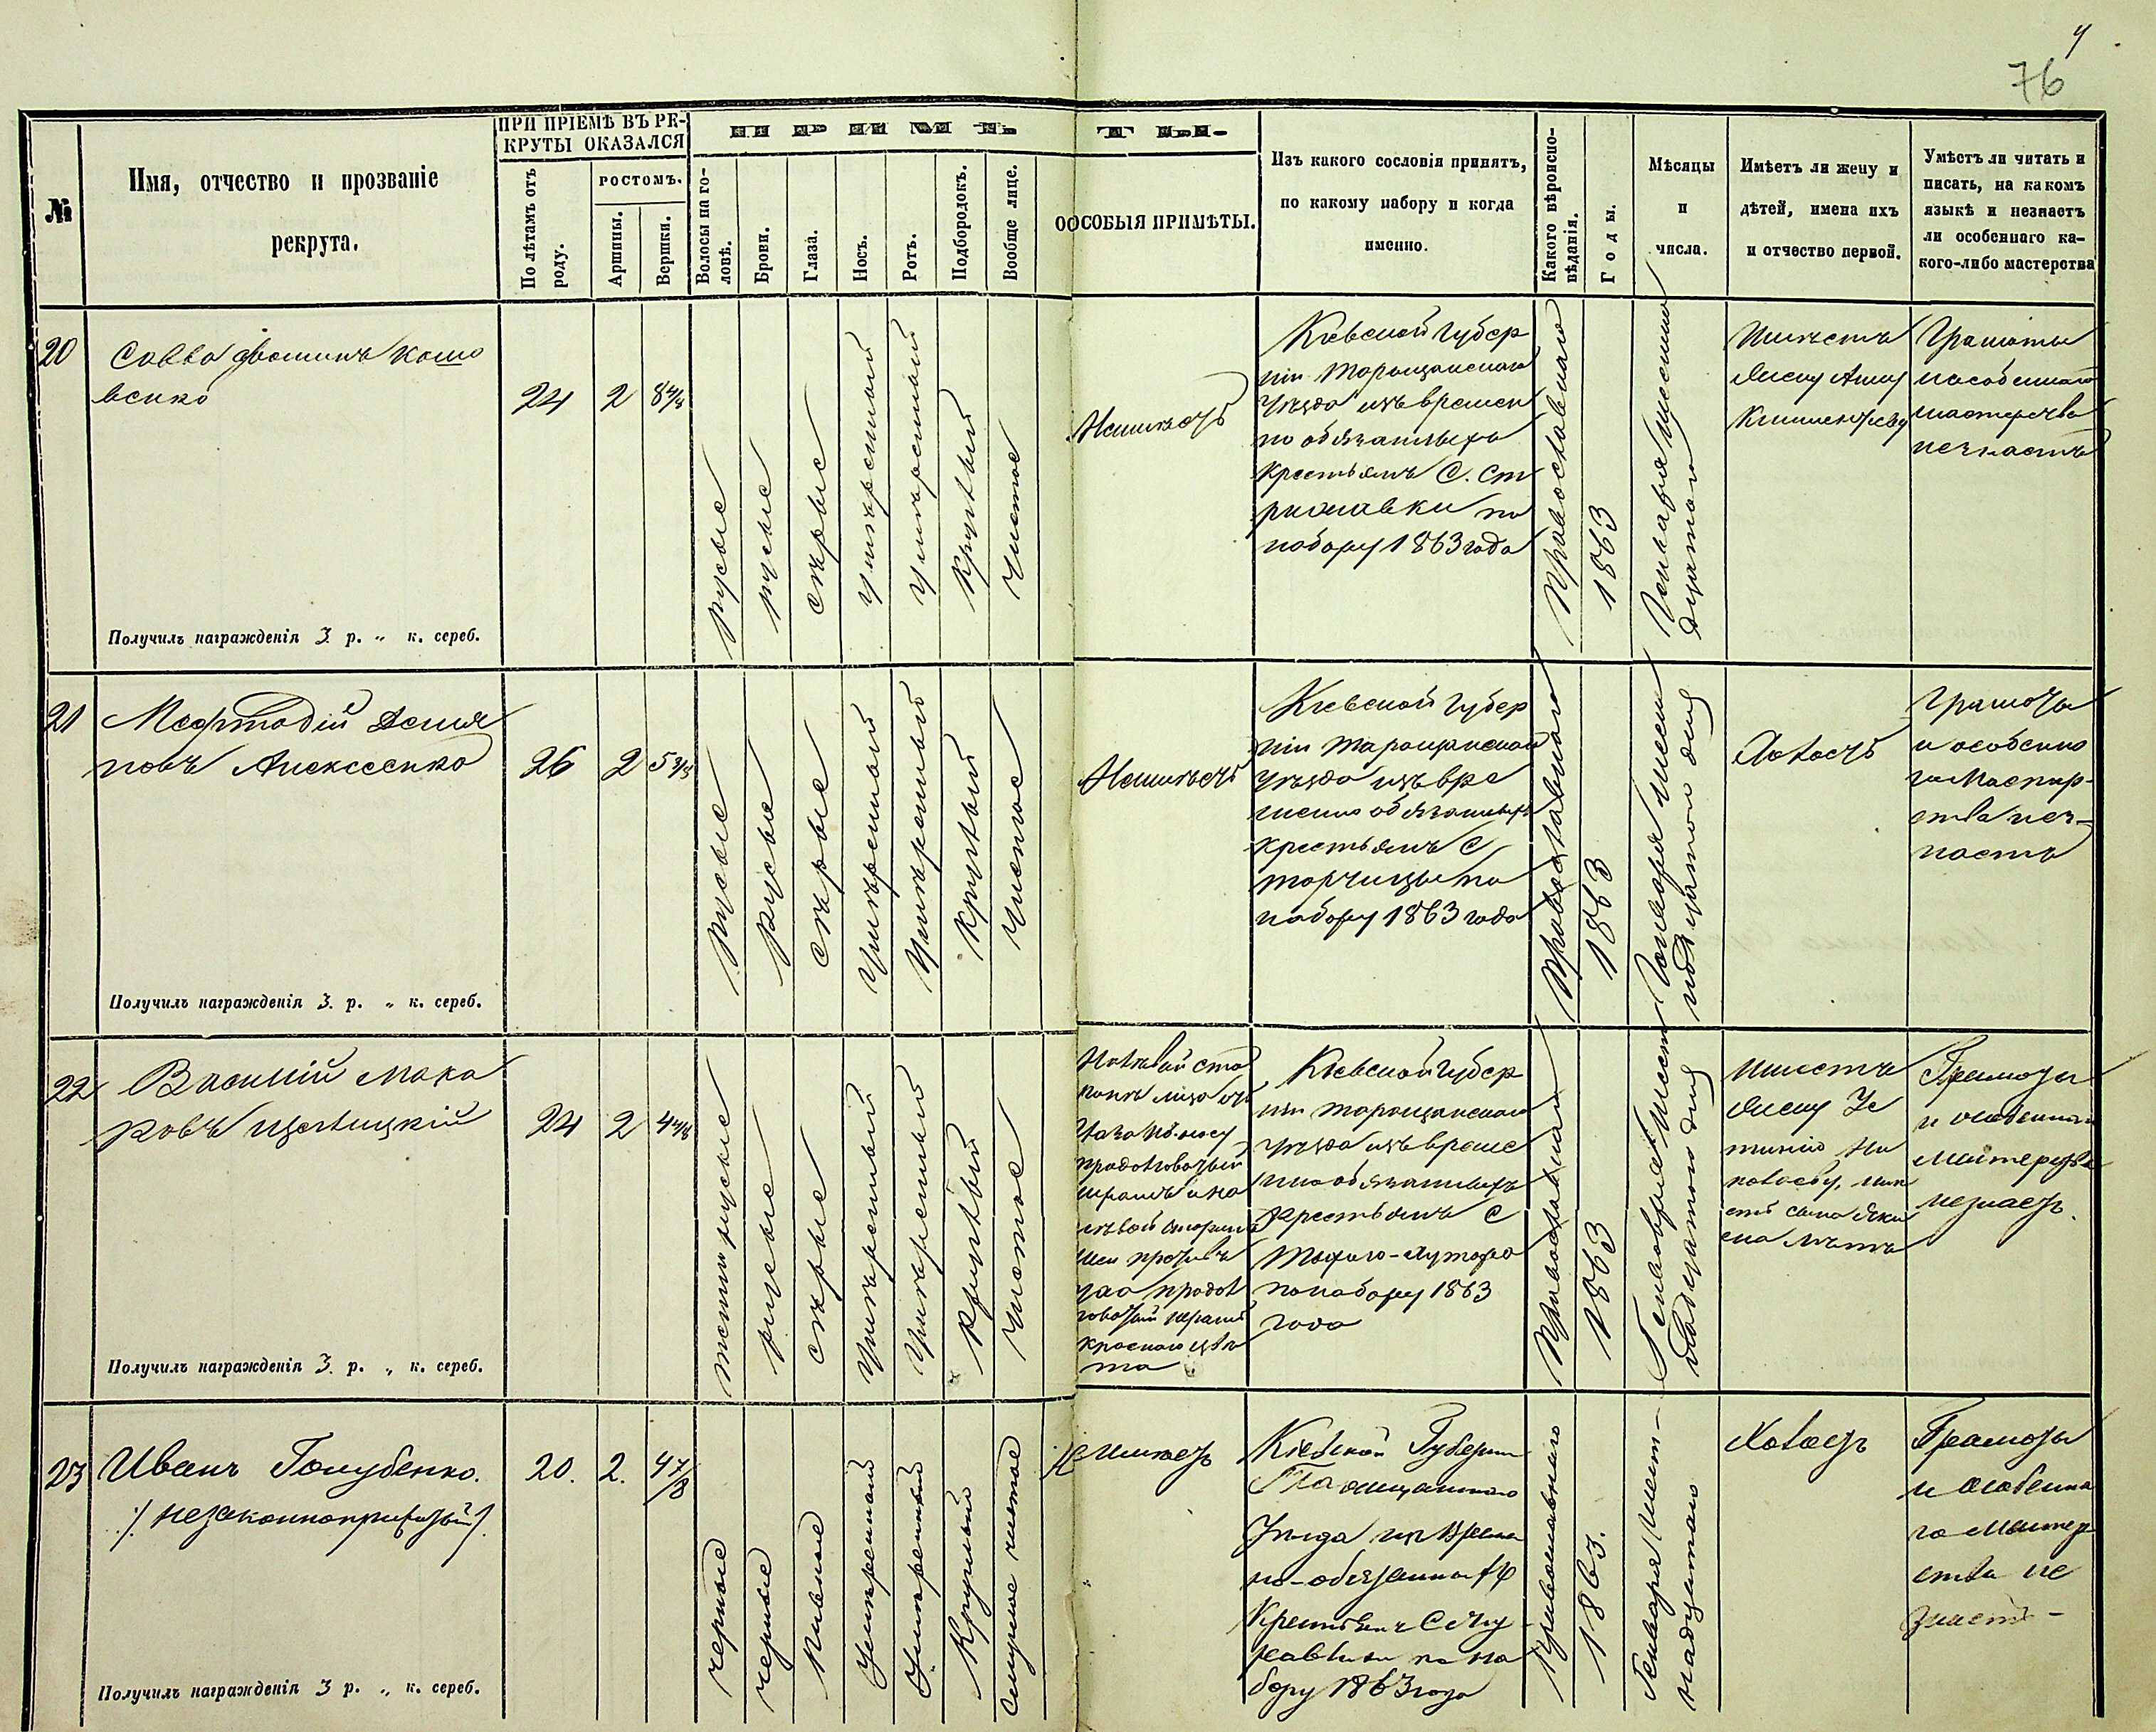 76
№
Имя, отчество и прозваніе
рекрута.
ПРИ ПРІЕМѢ ВЪ РЕ-
КРУТЫ ОКАЗАЛСЯ
По лѣтамъ отъ
роду.
РОСТОМЪ.
Аршины.
Вершки.
ПРИМѢ
ТЫ.
Волосы на го-
ловѣ.
Брови.
Глаза.
Носъ.
Ротъ.
Подбородокъ.
Вообще лице.
ОСОБЫЯ ПРИМѢТЫ.
Изъ какого сословія принятъ,
по какому набору и когда
именно.
Какого вѣроиспо-
вѣданія.
Годы.
Мѣсяцы
и
числа.
Имѣетъ ли жену и
дѣтей, имена ихъ
и отчество первой.
Умѣетъ ли читать и
писать, на какомъ
языкѣ и незнаетъ
ли особеннаго ка-
кого-либо мастерства
20
Савва
венко
24
2
8 4/8
русые
русые
сѣрые
умѣренный
умѣренный
круглый
чистое
Неимѣетъ
Кіевской Губер
ніи Таращанскаго
уѣзда изъ времен
но обязанныхъ
крестьянъ С. Ст
рижавки по
набору 1863 года
Православнаго
1863
Генваря шестна
дцатаго
Имѣетъ
жену Анну
Климентьеву
Грамоты
и особеннаго
мастерства
незнаетъ
Получилъ награжденія 3 р. „ к. сереб.
21
Мефтодій Демья
новъ Алексеенко
26
2
5
русые
русые
сѣрые
умѣренный
умѣренный
круглый
чистое
Неимѣетъ
Кіевской Губер
ніи Таращанскаго
уѣзда изъ вре
менно обязанныхъ
крестьянъ С
Торчицы по
набору 1863 года
Православнаго
1863
Генваря шест
надцатого дня
Холостъ
Грамоты
и особенно
го мастер-
ства нез-
наетъ
Получилъ награжденія 3. р. „ к. сереб.
22
Василій Мака
ровъ
24
2
4
темнорусые
русые
сѣрые
умѣренный
умѣренный
круглый
чистое
На лѣвой сто
ронѣ лица
глаза къ носу
продолговатый
шрамъ и на
лѣвой сторонѣ
шеи противъ
уха продол
говатый шрамъ
краснаго цвѣ
та
Кіевской Губер
ніи Таращанскаго
уѣзда изъ време
нно обязанныхъ
крестьянъ С
по набору 1863
года
Православнаго
1863
Генваря шест
надцатого дня
Имѣетъ
жену Ус
тинію Ни
колаеву, имѣ
етъ сына
лѣтъ
Грамоты
и особеннаго
мастерства
незнаетъ.
Получилъ награжденія 3. р. „ к. сереб.
23
Иванъ Голубенко.
/незаконноприжитый/.
20.
2.
4 7/8
черные
черные
умѣренный
умѣренный
Круглый
Смуглое чистое
Неимѣетъ
Кіевской Губерніи
Таращанскаго
Уѣзда изъ времен
но-обязанныхъ
Крестьянъ С
по на
бору 1863 года
Православнаго
1863.
Генваря шест-
надцатаго
Холостъ
Грамоты
и особенна
го мастер
ства не
знаетъ-
Получилъ награжденія 3 р. „ к. сереб.